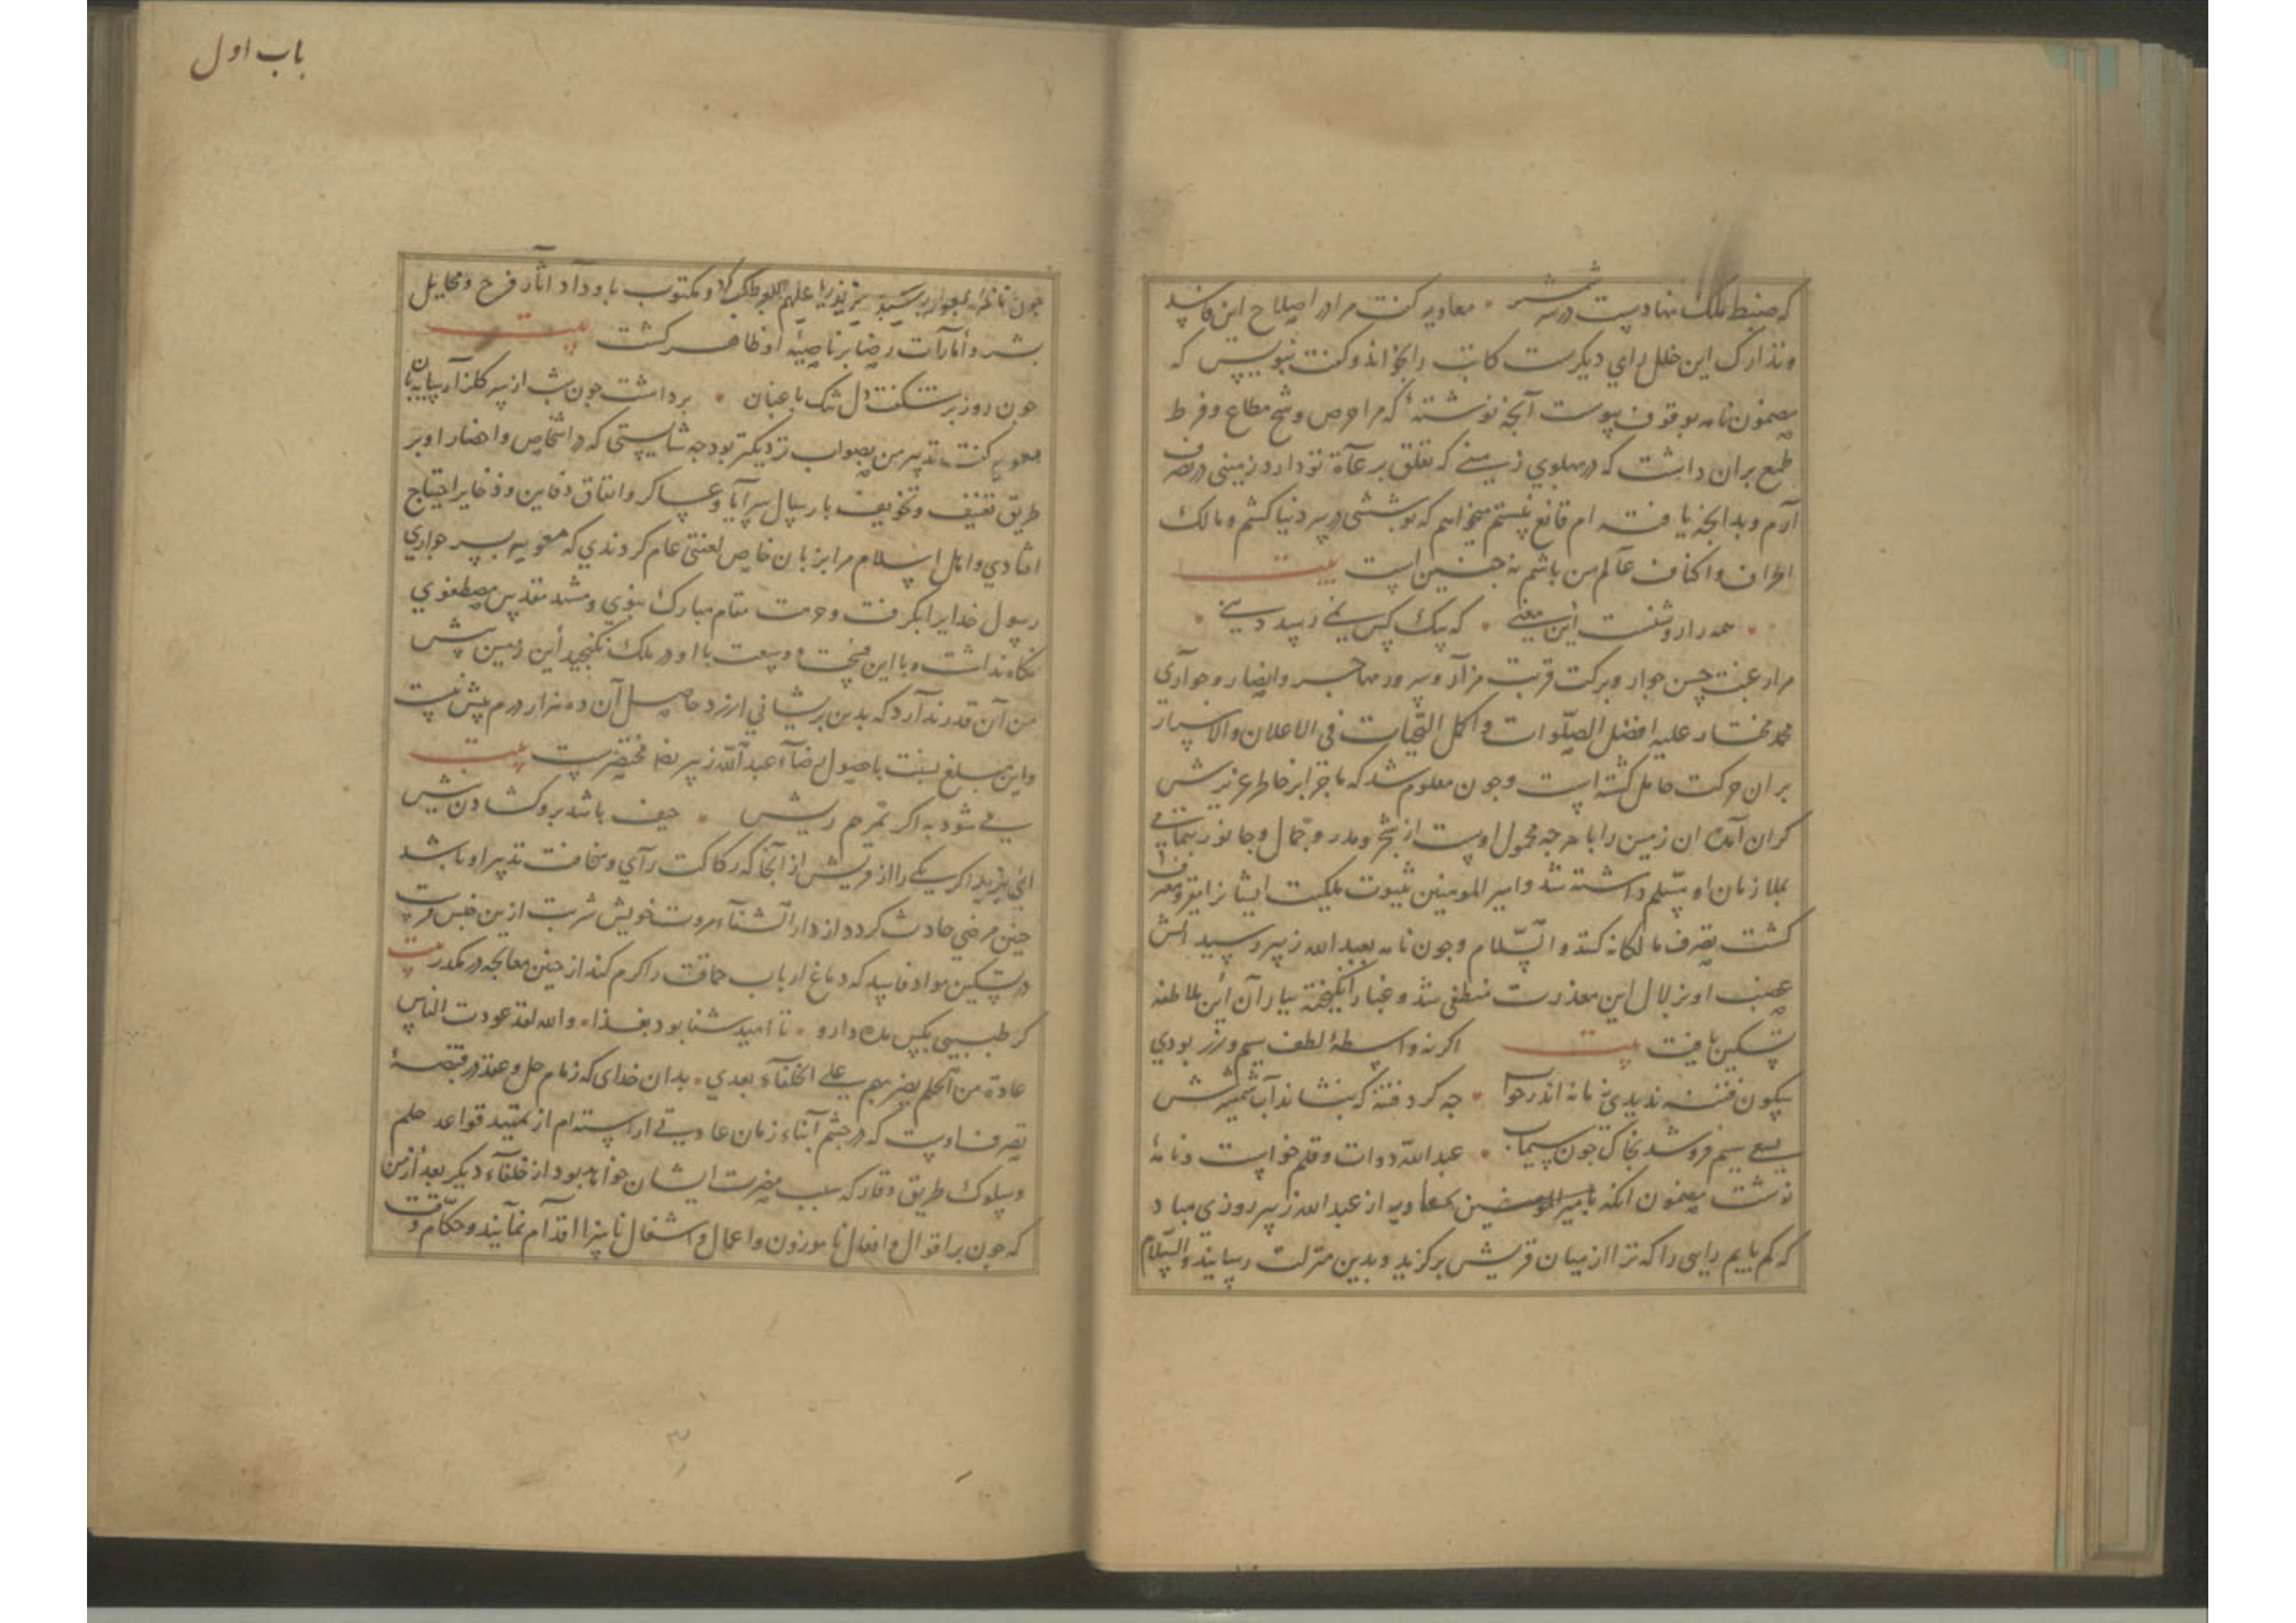 که ضبط ملک نهادست در سر شمشیر • معاویه گفت مرا در اصلاح این فاسد
و تدارک این خلل رای دیگرست کاتب را بخواند و گفت بنویس که
مضمون نامه بوقوف پیوست آنچه نوشتهٔ که مرا حرص و شح مطاع و فرط
طمع بران داشت که در پهلوی زمینی که تعلق برعاة تو دارد زمینی در تصرف
آرم و بدانچه یافته ام قانع نیستم میخواهم که پوششی در سر دنیا کشم و مالک
اطراف و اکناف عالم من باشم نه چنین است بیت
• همه را روشنست این معنی • که بیک کس نمی رسد دنیی •
مرا رغبت حسن جوار و برکت قربت مزار و سرور مهاجر و انصار و جواری
محمد مختار علیه افضل الصلوات و اکمل التحیات فی الاعلان و الاسرار
بران حرکت حامل گشته است و چون معلوم شد که ماجرا بر خاطر عزیزش
گران آمده ان زمین را با هرچه محمول اوست از شجر و مدر و جمال و جانور بتمامی
بملازمان او مسلم داشته شد و امیر المومنین بثبوت ملکیت ایشانرا مقر و معترف
گشت تصرف مالکانه کنند و السلام و چون نامه بعبد الله زبیر رسید آتش
غضب او بزلال این معذرت منطفی شد و غبار انگیخته بباران این ملاطفه
تسکین یافت بیت اگر نه واسطهٔ لطف سیم و زر بودی
سکون فتنه ندیدی زمانه اندر خواب • چه گرد فتنه که بنشاند آب شمشیرش
سعی سیم فرو شد بخاک چون سیماب • عبد الله دوات و قلم خواست و نامهٔ
نوشت مضمون انکه بامیر المومنین معاویه از عبد الله زبیر روزی مباد
که کم یابیم رایی را که ترا از میان قریش برگزید و بدین منزلت رسانید والسلام
باب اول
چون نامه بمعاویه رسید و مکتوب باو داد آثار فرح و مخایل
بشر و أمارات رضا بر ناصیهٔ او ظاهر گشت بیت
چون روز بر شکفت دل تنک باغبان • برداشت چون شب از سر گلزار سایه بان
معویه گفت تدبیر من بصواب نزدیکتر بود چه شایستی که در اشخاص و احضار او بر
طریق تعنیف و تخویف بارسال سرایا و عساکر و انفاق دفاین و ذخایر احتیاج
افتادی و اهل اسلام مرا بزبان خاص لعنتی عام کردندی که معویه بسر جواری
رسول خدایرا بگرفت و حرمت مقام مبارک نبوی و مشهد مقدس مصطفوی
نگاه نداشت و با این فسحت و وسعت با او در ملک نگنجید این زمین پیش
من آن قدر ندارد که بدین پریشانی ارزد حاصل آن ده هزار درم بیش نیست
و این مبلغ بنسبت با حصول رضاء عبد الله زبیر مختصرست بیت
می شود به اگر بمرهم ریش • حیف باشد برو گشادن نیش
ای یزید اگر یکی را از قریش از آنجا که رکاکت رآی و سخافت تدبیر او باشد
چنین مرضی حادث گردد از دار الشفاء مروت خویش شربت ازین جنس فرست
در تسکین مواد فاسد که دماغ ارباب حماقت را گرم کند از چنین معالجه در مگذر بیت
گر طبیبی بکس مده دارو • تا امید شفا بود بغذا • والله لقد عودت الناس
عادة من الحلم یضر بهم علی الخلفاء بعدی • بدان خدای که زمام حل و عقد در قبضهٔ
تصرف اوست که در چشم آبناء زمان عادیتی اراسته ام از تمهید قواعد حلم
و سلوک طریق وقار که سبب مضرت ایشان خواهد بود از خلفاء دیگر بعد از من
که چون بر اقوال و افعال ناموزون و اعمال و اشغال ناسزا اقدام نمایند و حکام وقت